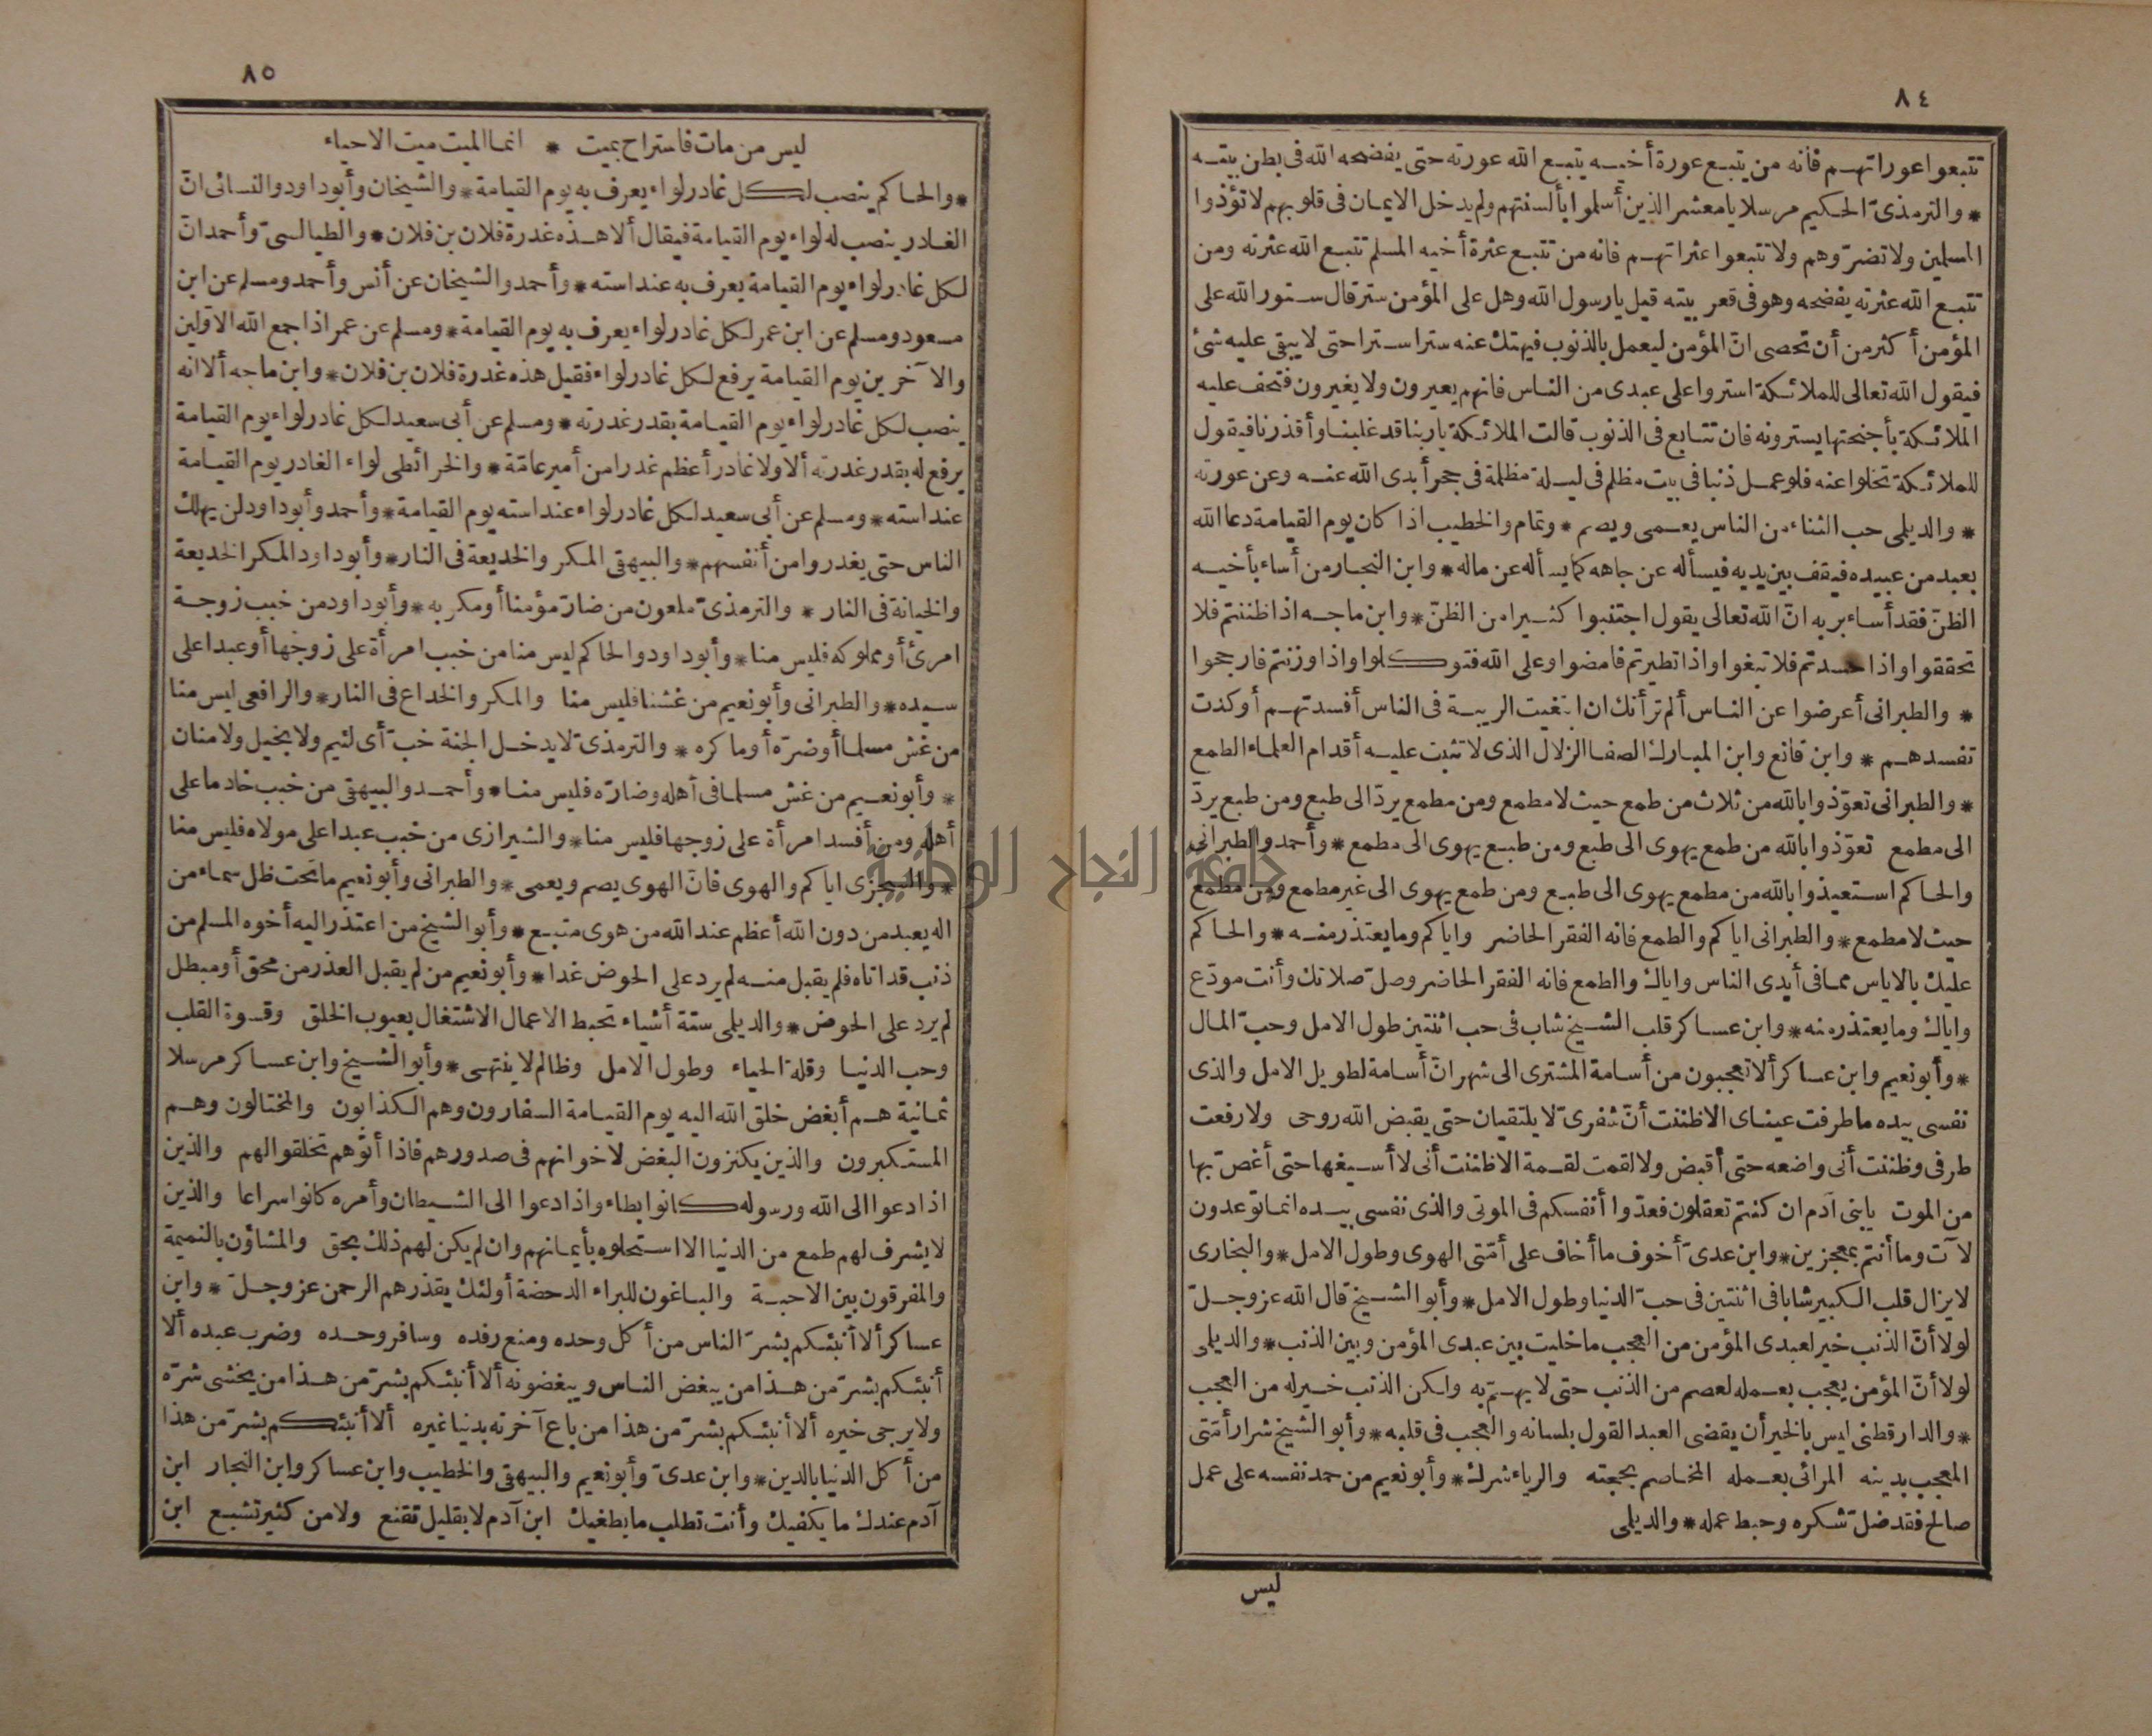 ٨٤
تتبعوا عوراتهم فانه من يتبع عورة أخيه يتبع الله عورته حتى يفضحه الله فى بطن بيته
* والترمذىّ الحكيم مرسلا يا معشر الذين أسلموا بألسنتهم ولم يدخل الايمان فى قلوبهم لا تؤذوا
المسلمين ولا تضرّوهم ولا تتبعوا عثراتهم فانه من تتبع عثرة أخيه المسلم تتبع الله عثرته ومن
تتبع الله عثرته يفضحه وهو فى قعر بيته قيل يا رسول الله وهل على المؤمن ستر قال ستور الله على
المؤمن أكثر من أن تحصى انّ المؤمن ليعمل بالذنوب فيهتك عنه سترا سترا حتى لا يبقى عليه شئ
فيقول الله تعالى للملائكة استروا على عبدى من الناس فانهم يعيرون ولا يغيرون فتحف عليه
الملائكة بأجنحتها يسترونه فان تتابع فى الذنوب قالت الملائكة يا ربنا قد غلبنا وأقذرنا فيقول
للملائكة تخلوا عنه فلو عمل ذنبا فى بيت مظلم فى ليلة مظلمة فى جحر أبدى الله عنه وعن عورته
* والديلمى حب الثناء من الناس يعمى ويصم * وتمام والخطيب اذا كان يوم القيامة دعا الله
بعبد من عبيده فيقف بين يديه فيسأله عن جاهه كما يسأله عن ماله * وابن النجار من أساء بأخيه
الظنّ فقد أساء بربه انّ الله تعالى يقول اجتنبوا كثيرا من الظنّ * وابن ماجه اذا ظننتم فلا
تحققوا واذا حسدتم فلا تبغوا واذا تطيرتم فامضوا وعلى الله فتوكلوا واذا وزنتم فارجحوا
* والطبرانى أعرضوا عن الناس ألم تر أنك ان ابتغيت الريبة فى الناس أفسدتهم أو كدت
تفسدهم * وابن قانع وابن المبارك الصفا الزلال الذى لا تثبت عليه أقدام العلماء الطمع
* والطبرانى تعوّذوا بالله من ثلاث من طمع حيث لا مطمع ومن مطمع يردّ الى طبع ومن طبع يردّ
الى مطمع تعوّذوا بالله من طمع يهوى الى طبع ومن طبع يهوى الى مطمع * وأحمد والطبرانى
والحاكم استعيذوا بالله من مطمع يهوى الى طبع ومن طمع يهوى الى غير مطمع ومن مطمع
حيث لا مطمع * والطبرانى اياكم والطمع فانه الفقر الحاضر واياكم وما يعتذر منه * والحاكم
عليك بالاياس مما فى أيدى الناس واياك والطمع فانه الفقر الحاضر وصلّ صلاتك وأنت مودّع
واياك وما يعتذر منه * وابن عساكر قلب الشيخ شاب فى حب اثنتين طول الامل وحبّ المال
* وأبو نعيم وابن عساكر ألا تعجبون من أسامة المشترى الى شهر انّ أسامة لطويل الامل والذى
نفسى بيده ما طرفت عيناى الا ظننت أنّ شفرىّ لا يلتقيان حتى يقبض الله روحى ولا رفعت
طرفى وظننت أنى واضعه حتى أقبض ولا لقمت لقمة الا ظننت أنى لا أسيغها حتى أغصّ بها
من الموت يا بنى آدم ان كنتم تعقلون فعدّوا أنفسكم فى الموتى والذى نفسى بيده انما توعدون
لآت وما أنتم بمعجزين * وابن عدىّ أخوف ما أخاف على أمّتى الهوى وطول الامل * والبخارى
لا يزال قلب الكبير شابا فى اثنتين فى حبّ الدنيا وطول الامل * وأبو الشيخ قال الله عز وجلّ
لولا أنّ الذنب خير لعبدى المؤمن من العجب ما خليت بين عبدى المؤمن وبين الذنب * والديلمى
لولا أنّ المؤمن يعجب بعمله لعصم من الذنب حتى لا يهمّ به ولكن الذنب خير له من العجب
* والدارقطنى ليس بالخير أن يقضى العبد القول بلسانه والعجب فى قلبه * وأبو الشيخ شرار أمّتى
المعجب بدينه المرائى بعمله المخاصم بحجته والرياء شرك * وأبو نعيم من حمد نفسه على عمل
صالح فقد ضلّ شكره وحبط عمله * والديلمى
ليس
٨٥
ليس من مات فاستراح بميت * انما الميت ميت الاحياء
* والحاكم ينصب لكل غادر لواء يعرف به يوم القيامة * والشيخان وأبو داود والنسائى انّ
الغادر ينصب له لواء يوم القيامة فيقال ألا هذه غدرة فلان بن فلان * والطيالسىّ وأحمد انّ
لكل غادر لواء يوم القيامة يعرف به عند استه * وأحمد والشيخان عن أنس وأحمد ومسلم عن ابن
مسعود ومسلم عن ابن عمر لكل غادر لواء يعرف به يوم القيامة * ومسلم عن عمر اذا جمع الله الاوّلين
والآخرين يوم القيامة يرفع لكل غادر لواء فقيل هذه غدرة فلان بن فلان * وابن ماجه ألا انه
ينصب لكل غادر لواء يوم القيامة بقدر غدرته * ومسلم عن أبى سعيد لكل غادر لواء يوم القيامة
يرفع له بقدر غدرته ألا ولا غادر أعظم غدرا من أمير عامّة * والخرائطى لواء الغادر يوم القيامة
عند استه * ومسلم عن أبى سعيد لكل غادر لواء عند استه يوم القيامة * وأحمد وأبو داود لن يهلك
الناس حتى يغدروا من أنفسهم * والبيهقى المكر والخديعة فى النار * وأبو داود المكر الخديعة
والخيانة فى النار * والترمذىّ ملعون من ضارّ مؤمنا أو مكر به * وأبو داود من خبب زوجة
امرئ أو مملوكه فليس منا * وأبو داود والحاكم ليس منا من خبب امرأة على زوجها أو عبدا على
سيده * والطبرانى وأبو نعيم من غشنا فليس منا والمكر والخداع فى النار * والرافعى ليس منا
من غش مسلما أو ضرّه أو ماكره * والترمذىّ لا يدخل الجنة خبّ أى لئيم ولا بخيل ولا منان
* وأبو نعيم من غش مسلما فى أهله وضارّه فليس منا * وأحمد والبيهقى من خبب خادما على
أهله ومن أفسد امرأة على زوجها فليس منا * والشيرازى من خبب عبدا على مولاه فليس منا
* والسجزى اياكم والهوى فانّ الهوى يصم ويعمى * والطبرانى وأبو نعيم ما تحت ظل سماء من
اله يعبد من دون الله أعظم عند الله من هوى متبع * وأبو الشيخ من اعتذر اليه أخوه المسلم من
ذنب قد اتاه فلم يقبل منه لم يرد على الحوض غدا * وأبو نعيم من لم يقبل العذر من محق أو مبطل
لم يرد على الحوض * والديلمى ستة أشياء تحبط الاعمال الاشتغال بعيوب الخلق وقسوة القلب
وحب الدنيا وقلة الحياء وطول الامل وظالم لا ينتهى * وأبو الشيخ وابن عساكر مرسلا
ثمانية هم أبغض خلق الله اليه يوم القيامة السفارون وهم الكذابون والمختالون وهم
المستكبرون والذين يكنزون البغض لاخوانهم فى صدورهم فاذا أتوهم تخلقوا لهم والذين
اذا دعوا الى الله ورسوله كانوا بطاء واذا دعوا الى الشيطان وأمره كانوا سراعا والذين
لا يشرف لهم طمع من الدنيا الا استحلوه بأيمانهم وان لم يكن لهم ذلك بحق والمشاؤن بالنميمة
والمفرقون بين الاحبة والباغون للبراء الدحضة أولئك يقذرهم الرحمن عز وجلّ * وابن
عساكر ألا أنبئكم بشرّ الناس من أكل وحده ومنع رفده وسافر وحده وضرب عبده ألا
أنبئكم بشرّ من هذا من يبغض الناس ويبغضونه ألا أنبئكم بشرّ من هذا من يخشى شرّه
ولا يرجى خيره ألا أنبئكم بشرّ من هذا من باع آخرته بدنيا غيره ألا أنبئكم بشرّ من هذا
من أكل الدنيا بالدين * وابن عدىّ وأبو نعيم والبيهقى والخطيب وابن عساكر وابن النجار ابن
آدم عندك ما يكفيك وأنت تطلب ما يطغيك ابن آدم لا بقليل تقنع ولا من كثير تشبع ابن
جامعة النجاح الوطنية